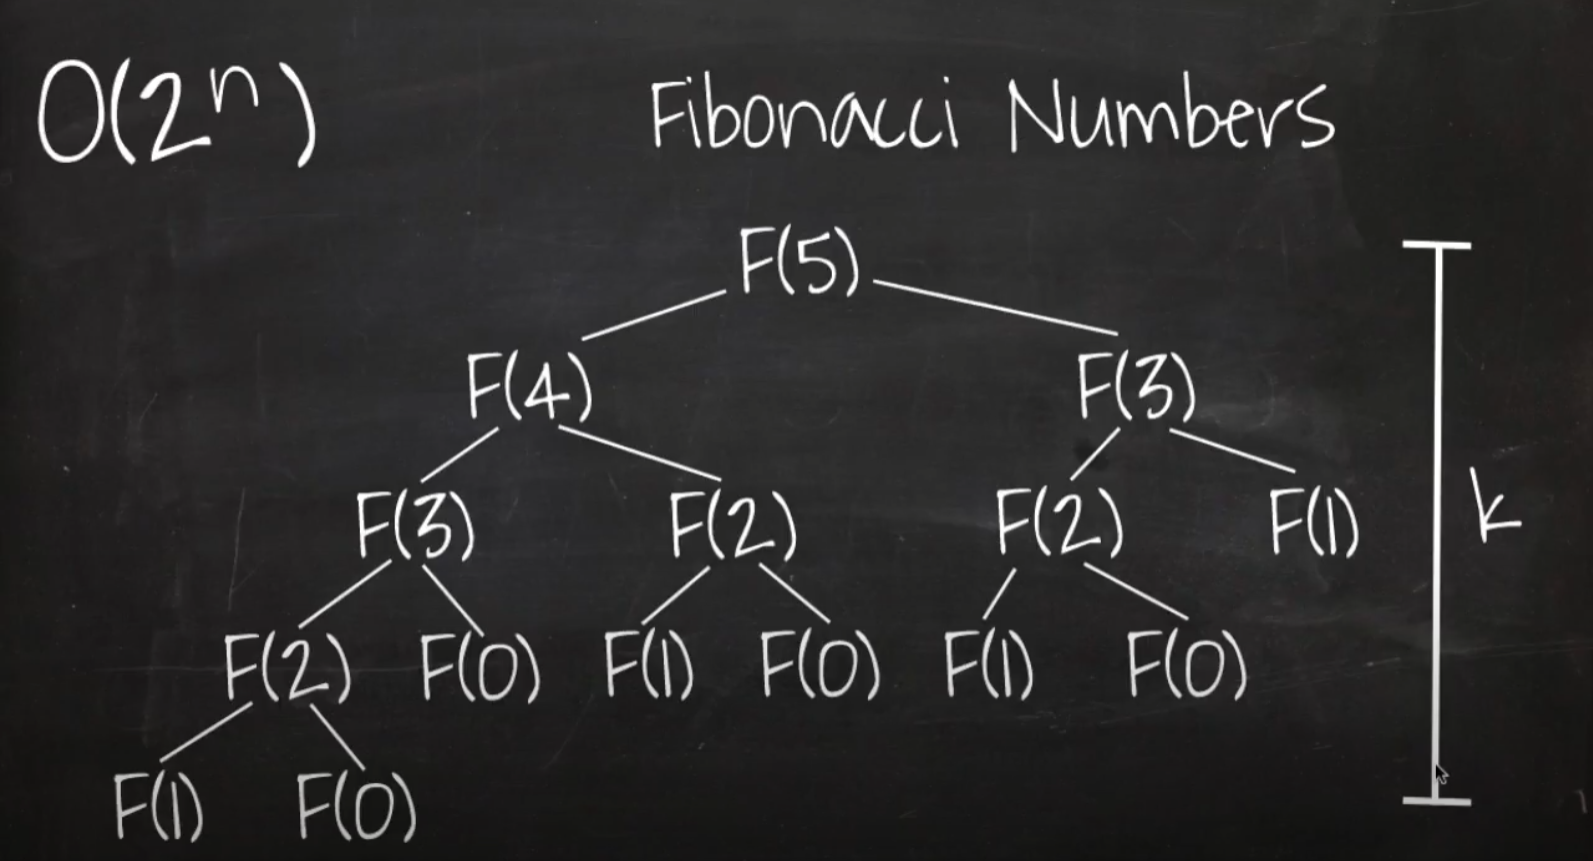 O(2ⁿ)
Fibonacci Numbers
F(5)
F(4) F(3)
F(3) F(2) F(2) F(1)
k
F(2) F(0) F(1) F(0) F(1) F(0)
F(1) F(0)